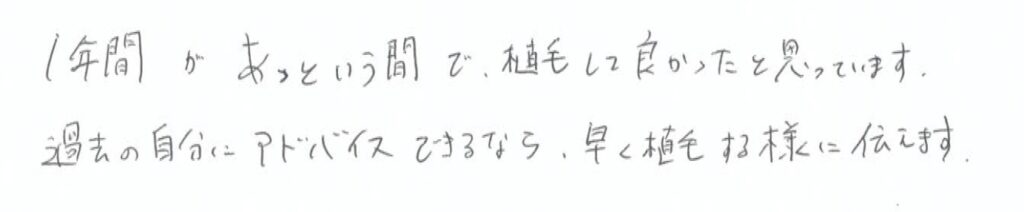 1年間があっという間で、植毛して良かったと思っています.
過去の自分にアドバイスできるなら、早く植毛する様に伝えます.